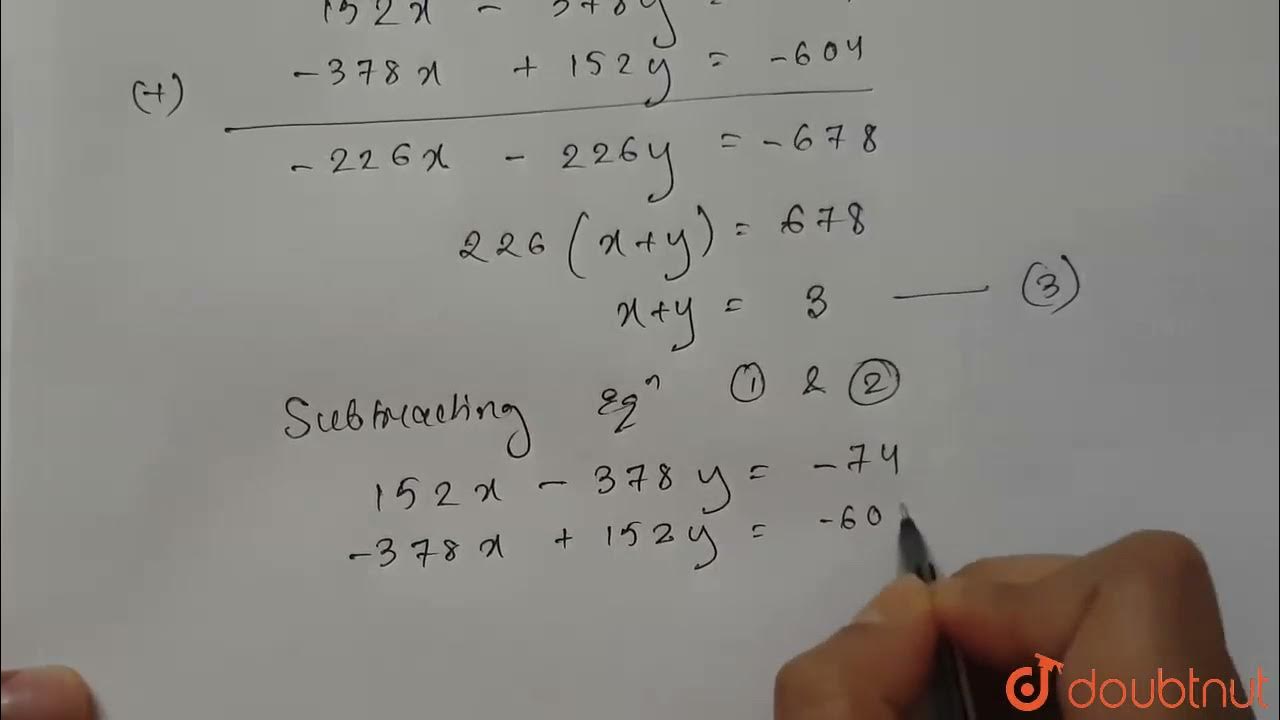 152x - 378y =
(+) -378x + 152y = -604
-226x - 226y = -678
226 (x+y) = 678
x+y = 3 — (3)
Subtracting Eqⁿ ① & ②
152x - 378y = -74
-378x + 152y = -60
doubtnut